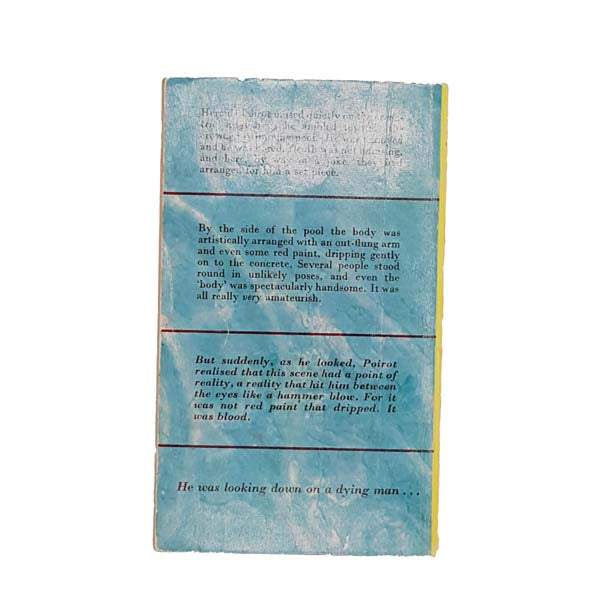 Hercule Poirot paused quietly on the
and here, by way of a joke, they had
arranged for him a set piece.
By the side of the pool the body was
artistically arranged with an out-flung arm
and even some red paint, dripping gently
on to the concrete. Several people stood
round in unlikely poses, and even the
‘body’ was spectacularly handsome. It was
all really very amateurish.
But suddenly, as he looked, Poirot
realised that this scene had a point of
reality, a reality that hit him between
the eyes like a hammer blow. For it
was not red paint that dripped. It
was blood.
He was looking down on a dying man . . .